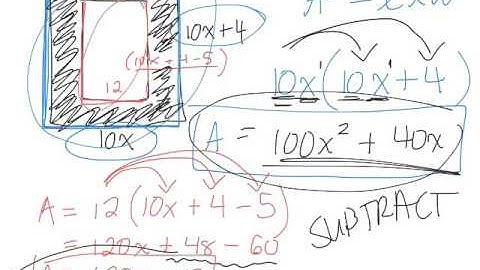 A = l x w
10x + 4
(10x + 4 - 5)
12
10x
10x(10x + 4)
A = 100x² + 40x
A = 12(10x + 4 - 5)
= 120x + 48 - 60
SUBTRACT